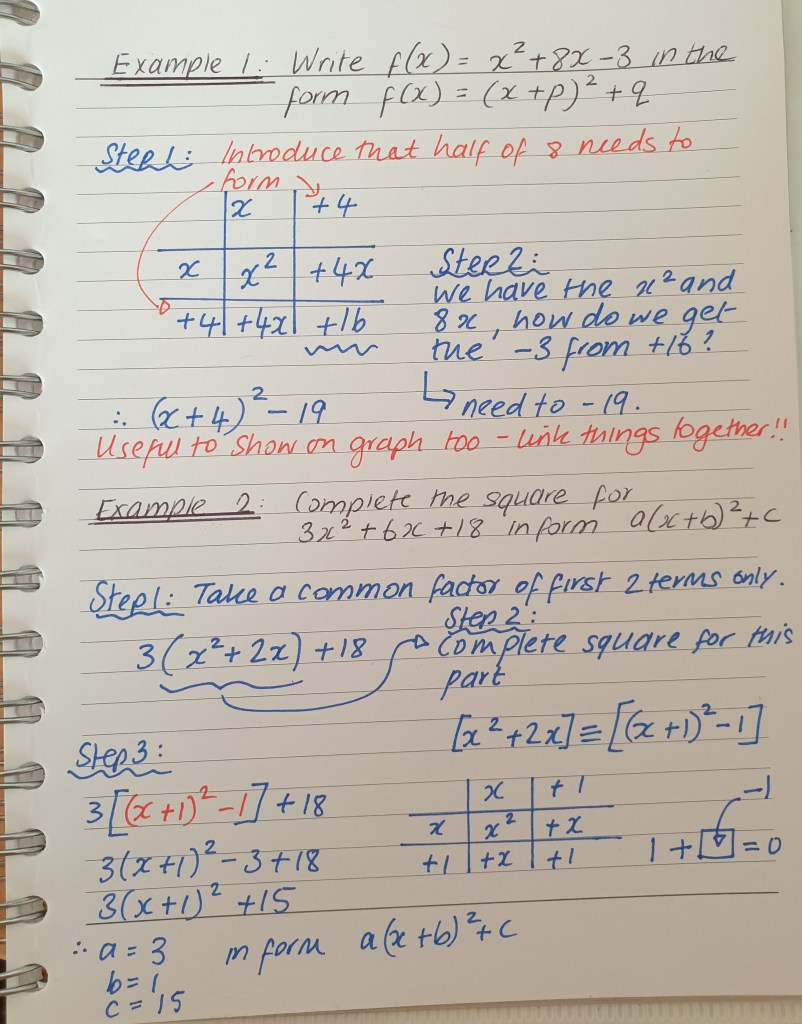 Example 1: Write f(x) = x² + 8x - 3 in the
form f(x) = (x + p)² + q
Step 1: Introduce that half of 8 needs to
form
x +4
x x² +4x
+4 +4x +16
Step 2:
We have the x² and
8x, how do we get
the -3 from +16?
↳ need to -19.
∴ (x+4)² - 19
Useful to show on graph too - link things together!!
Example 2: Complete the square for
3x² + 6x + 18 in form a(x+b)² + c
Step 1: Take a common factor of first 2 terms only.
3(x² + 2x) + 18
Step 2:
Complete square for this
part
[x² + 2x] ≡ [(x+1)² - 1]
x +1
x x² +x
+1 +x +1
-1
1 + □ = 0
Step 3:
3[(x+1)² - 1] + 18
3(x+1)² - 3 + 18
3(x+1)² + 15
∴ a = 3 in form a(x+b)² + c
b = 1
c = 15